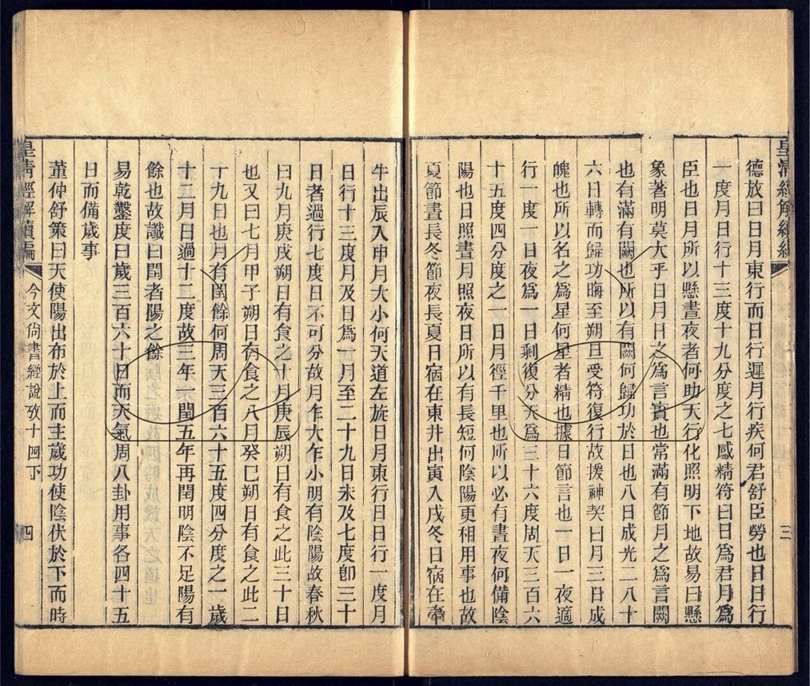 皇清經解續編
三
德放曰日月東行而日行遲月行疾何君舒臣勞也日日行
一度月日行十三度十九分度之七感精符曰日爲君月爲
臣也日月所以懸晝夜者何助天行化照明下地故易曰懸
象著明莫大乎日月日之爲言實也常滿有節月之爲言闕
也有滿有闕也所以有闕何歸功於日也八日成光二八十
六日轉而歸功晦至朔旦受符復行故援神契曰月三日成
魄也所以名之爲星何星者精也據日節言也一日一夜適
行一度一日夜爲一日剩復分天爲三十六度周天三百六
十五度四分度之一日月徑千里也所以必有晝夜何備陰
陽也日照晝月照夜日所以有長短何陰陽更相用事也故
夏節晝長冬節夜長夏日宿在東井出寅入戌冬日宿在牽
牛出辰入申月大小何天道左旋日月東行日日行一度月
日行十三度月及日爲一月至二十九日未及七度卽三十
日者過行七度日不可分故月乍大乍小明有陰陽故春秋
曰九月庚戌朔日有食之十月庚辰朔日有食之此三十日
也又曰七月甲子朔日有食之八月癸巳朔日有食之此二
十九日也月有閏餘何周天三百六十五度四分度之一歲
十二月日過十二度故三年一閏五年再閏明陰不足陽有
餘也故讖曰閏者陽之餘
易乾鑿度曰歲三百六十日而天氣周八卦用事各四十五
日而備歲事
董仲舒策曰天使陽出布於上而主歲功使陰伏於下而時
皇清經解續編
今文尙書經說攷十四下
四